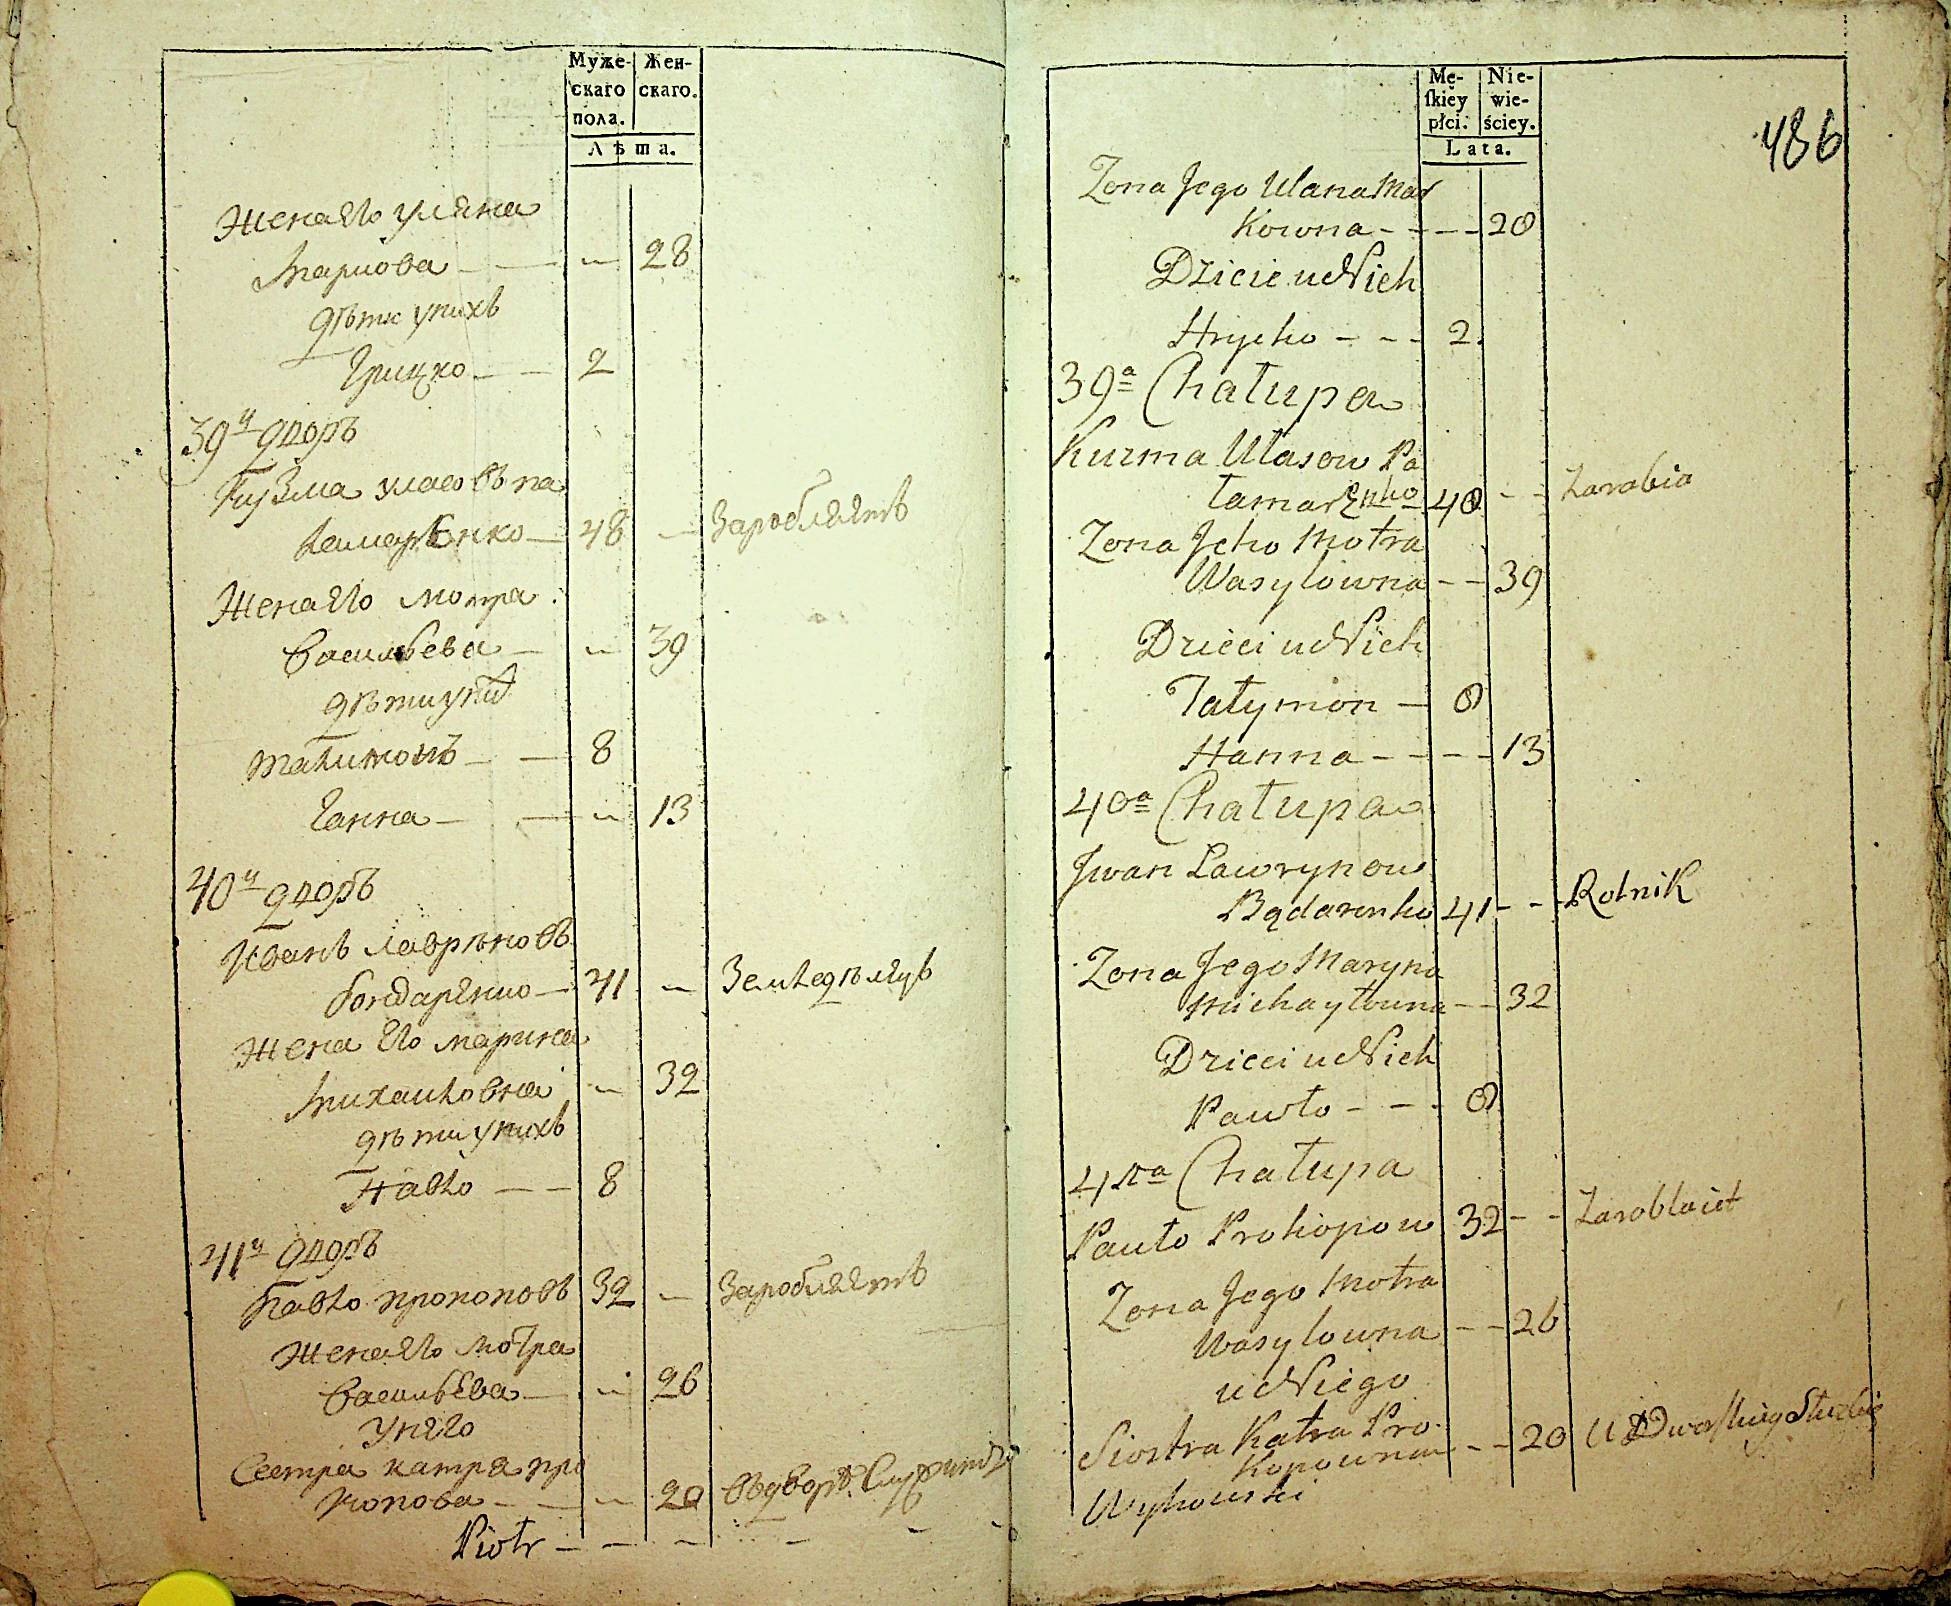 Муже-
скаго
пола.
Жен-
скаго.
Лѣта.
Жена его уляна
Маркова — — 28
дѣти унихъ
Грицко — — 2
39й дворъ
Кузма уласовъ па
ламарЕнко — 48 — Заробляетъ
Жена его мотра
Васильева — — 39
дѣти униⷯ
Талимонъ — — 8
Ганна — — — 13
40й дворъ
Иванъ лаврѣновъ
бондаренко — 41 — Земледѣлецъ
Жена Его марина
Михаиловна — 32
дѣти унихъ
Павло — — 8
41й дворъ
Павло прокоповъ 32 — Заробляетъ
Жена его мотра
ВасильЕва — — 26
Унего
Сестра катря про
копова — — — 20 въдворѣ Служитъ
Piotr — — — — —
Mę-
ſkiéy
płci.
Nie-
wie-
ściey.
Lata.
486
Zona Jego Ulana Mar
Kowna - - - - 28
Dzicie u Nich
Hrycko - - - 2.
39ª Chałupa
Kuzma Ułasow Pa
łamarEnko 48 - - Zarabia
Zona Jeho Motra
Wasylowna - - 39
Dzieci u Nich
Tałymon — 8
Hanna - - - - 13
40ª Chałupa
Jwan Lawrynow
Bądarenko 41 - - Rolnik
Zona Jego Maryna
Michayłowna - - 32
Dzieci u Nich
Pawło - - - 8
41ª Chałupa
Pawło Prokopow 32 - - Zaroblaiet
Zona Jego Motra
Wasylowna - - 26
u Niego
Siostra Katra Pro
Kopowna - - 20 U Dworu Służy
Wykowski